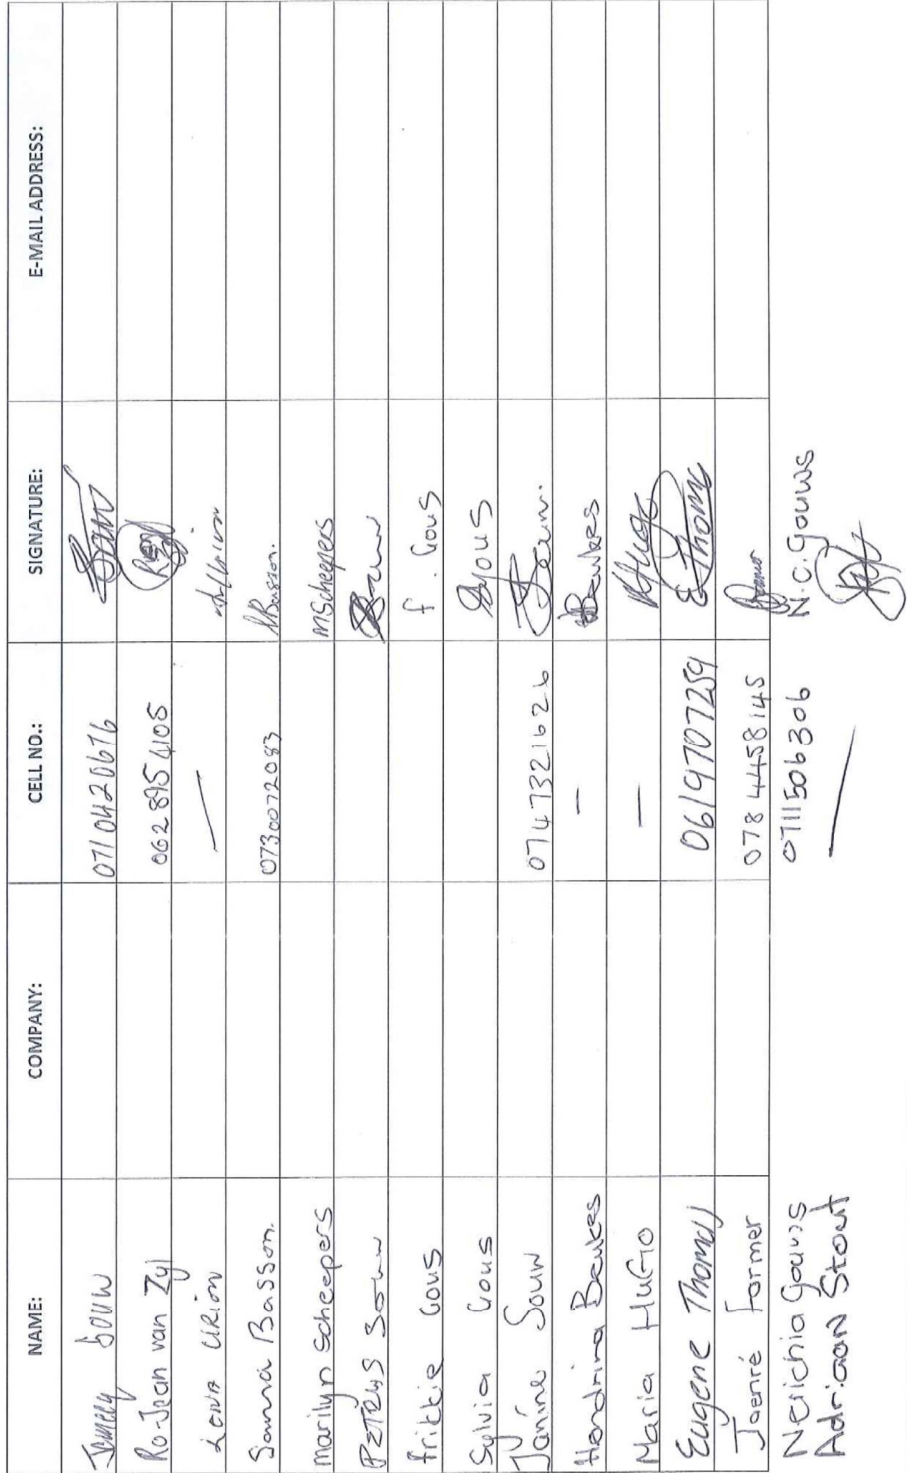 NAME: COMPANY: CELL NO.: SIGNATURE: E-MAIL ADDRESS:
Souw 0710420676
Ro-Jean van Zyl 062 895 4105
Lena —
Sanna Basson. 0730072083 Basson.
Marilyn Scheepers MScheepers
PETRUS Souw
Frikkie Gous f. Gous
Sylvia Gous SGous
Janine Souw 0747321626
Hendrina Beukes – HBeukes
Maria HUGO – MHugo
Eugene Thomas 0619707259 E Thomas
Jaenré Farmer 078 4458145
Nerichia Gouws 0711506306 N.C. Gouws
Adriaan Stout —